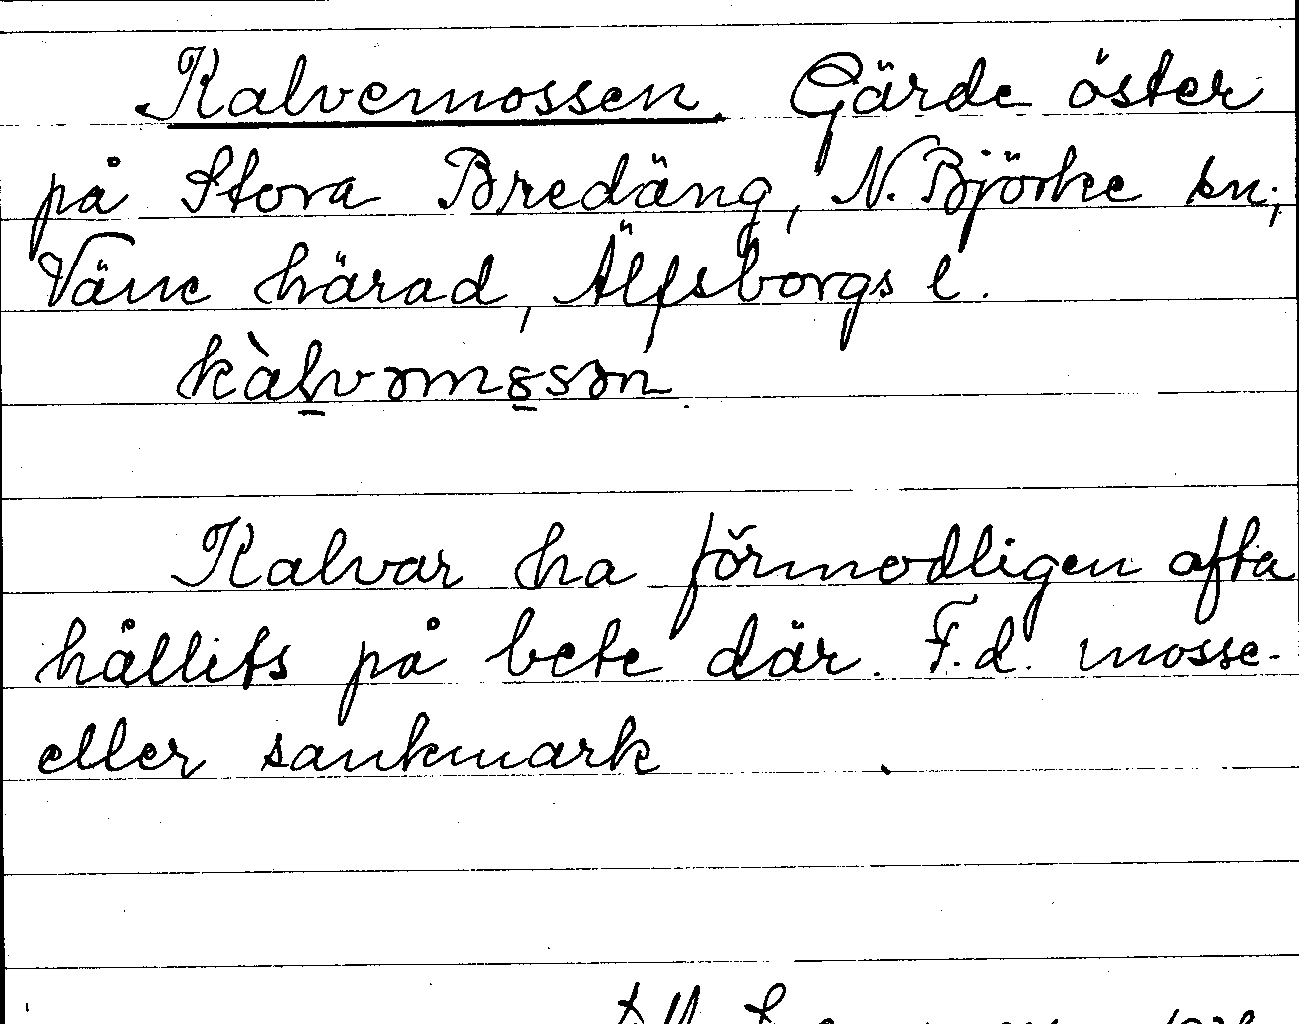 Kalvemossen. Gärde öster
på Stora Bredäng, N. Björke sn;
Väne härad, Älfsborgs l.
kàlvəmɷsən.
Kalvar ha förmodligen ofta
hållits på bete där. F.d. mosse-
eller sankmark.